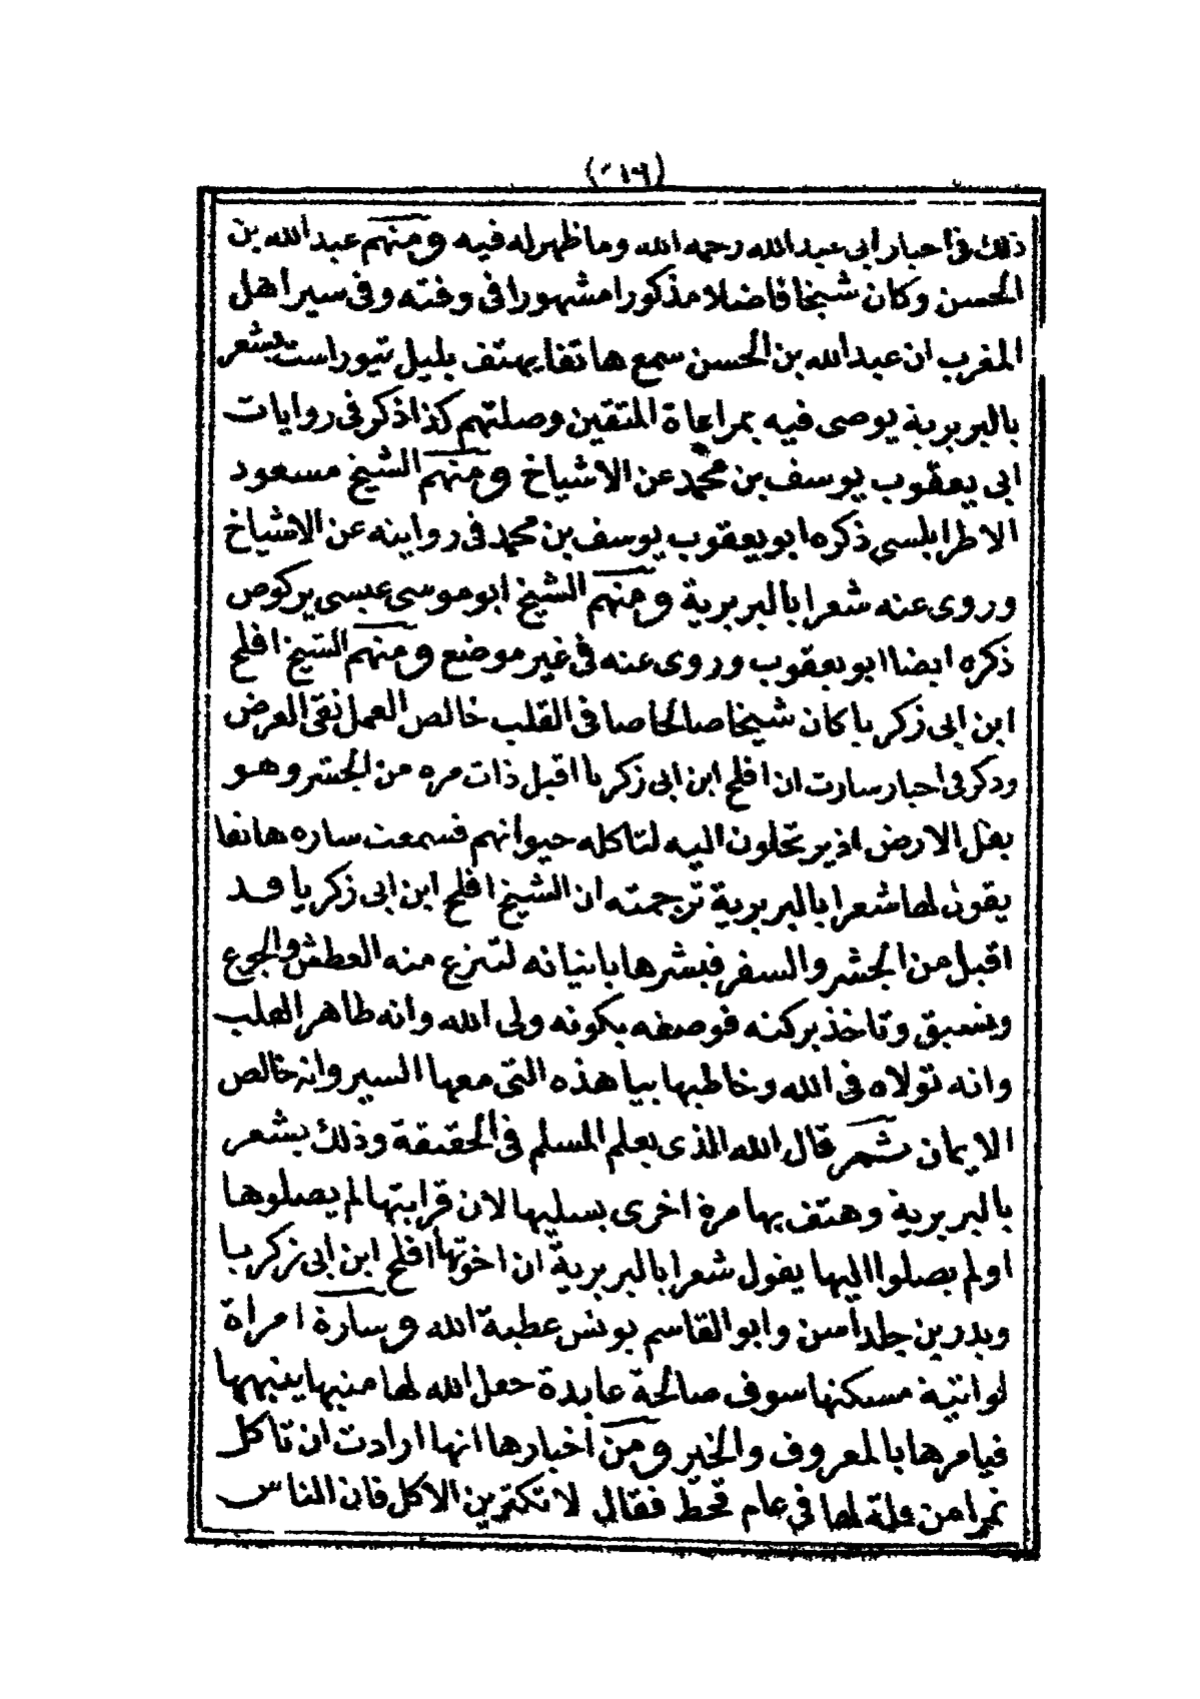 ذلك فى احبار ابى عبدالله رحمه الله وما ظهر له فيه ومنهم عبدالله بن
الحسن وكان شيخا فاضلا مذكورا مشهورا فى وقته وفى سير اهل
المغرب ان عبدالله بن الحسن سمع هاتفا يهتف بليل تيوراست بشعر
بالبربرية يوصى فيه بمراعاة المتقين وصلتهم كذا ذكر فى روايات
ابى يعقوب يوسف بن محمد عن الاشياخ ومنهم الشيخ مسعود
الاطرابلسى ذكره ابو يعقوب يوسف بن محمد فى روايته عن الاشياخ
وروى عنه شعرا بالبربرية ومنهم الشيخ ابو موسى عيسى يركوص
ذكره ايضا ابو يعقوب وروى عنه فى غير موضع ومنهم الشيخ افلح
ابن ابى زكريا كان شيخا صالحا صافى القلب خالص العمل نقى العرض
وذكر فى احبار سارت ان افلح ابن ابى زكريا اقبل ذات مره من الجشر وهو
بقل الارض اذ يرتحلون اليه لتاكله حيوانهم فسمعت ساره هاتفا
يقول لها شعرا بالبربرية ترجمته ان الشيخ افلح ابن ابى زكريا قد
اقبل من الجشر والسفر فبشرها باتيانه لتنزع منه العطش والجوع
وتاخذ بركته فوصفه بكونه ولى الله وانه طاهر القلب
وانه تولاه فى الله وخاطبها بيا هذه التى معها السير وانه خالص
الايمان ثم قال الله الذى يعلم المسلم فى الحقيقة وذلك بشعر
بالبربرية وهتف بها مرة اخرى يسليها لان قرابتها لم يصلوها
اولم يصلوا اليها يقول شعرا بالبربرية ان اخوتها افلح ابن ابى زكريا
وبدر بن جلداسن وابوالقاسم يونس عطية الله وسارة امراة
لواتية مسكنها سوف صالحة عابدة جعل الله لها منبها ينبهها
فيامرها بالمعروف والخير ومن أخبارها انها ارادت ان تاكل
تمرا من غلة لها فى عام قحط فقال لا تكثرين الاكل فان الناس